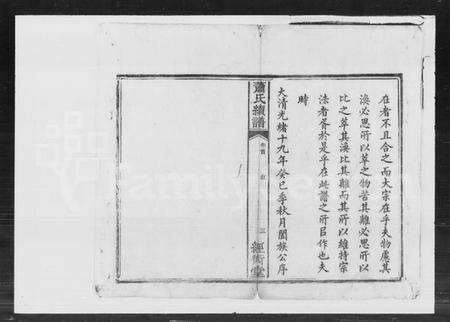 在者不且合之而大宗在乎夫物虞其
渙必思所以萃之物苦其難必思所以
比之萃其渙比其難而其所以維持宗
法者胥於是乎在此譜之所㠯作也夫
時
大清光緒十九年癸巳季秋月闔族公序
蕭氏續譜
卷首
序
三
經術堂